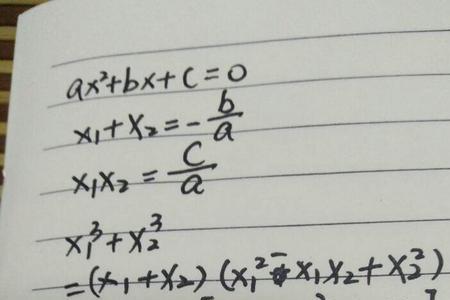 ax²+bx+c=0
x₁+x₂=-b/a
x₁x₂=c/a
x₁³+x₂³
=(x₁+x₂)(x₁²-x₁x₂+x₂²)